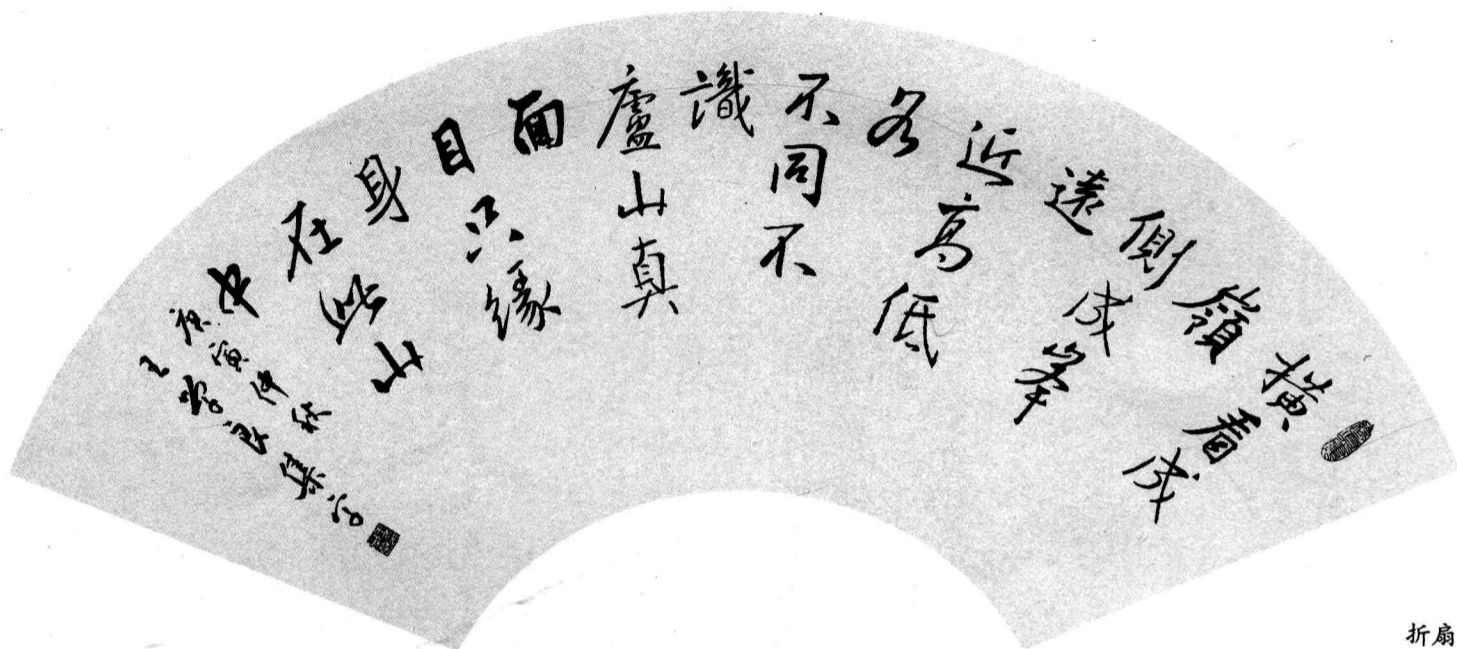 橫看成
嶺
側成峯
遠
近高低
各
不同不
識
廬山真
面
目只緣
身
在此山
中
庚寅仲秋
王學集字
折扇